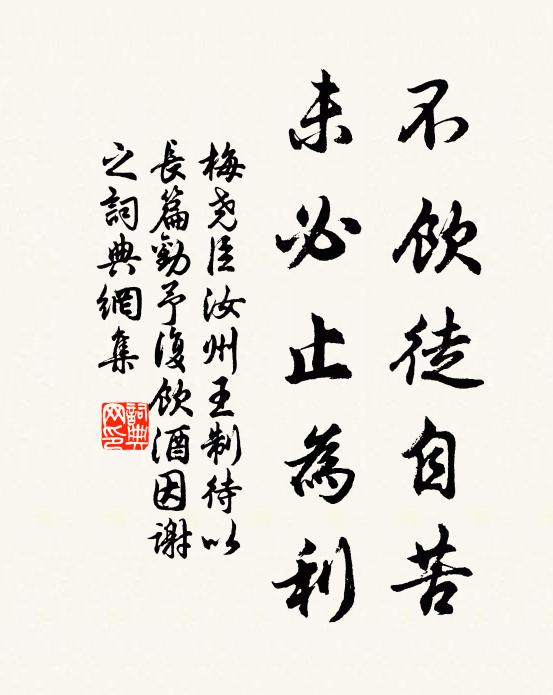 不飲徒自苦
未必止為利
梅堯臣汝州王制待以
長篇勸予復飲酒因謝
之詞典網集
詞典網印